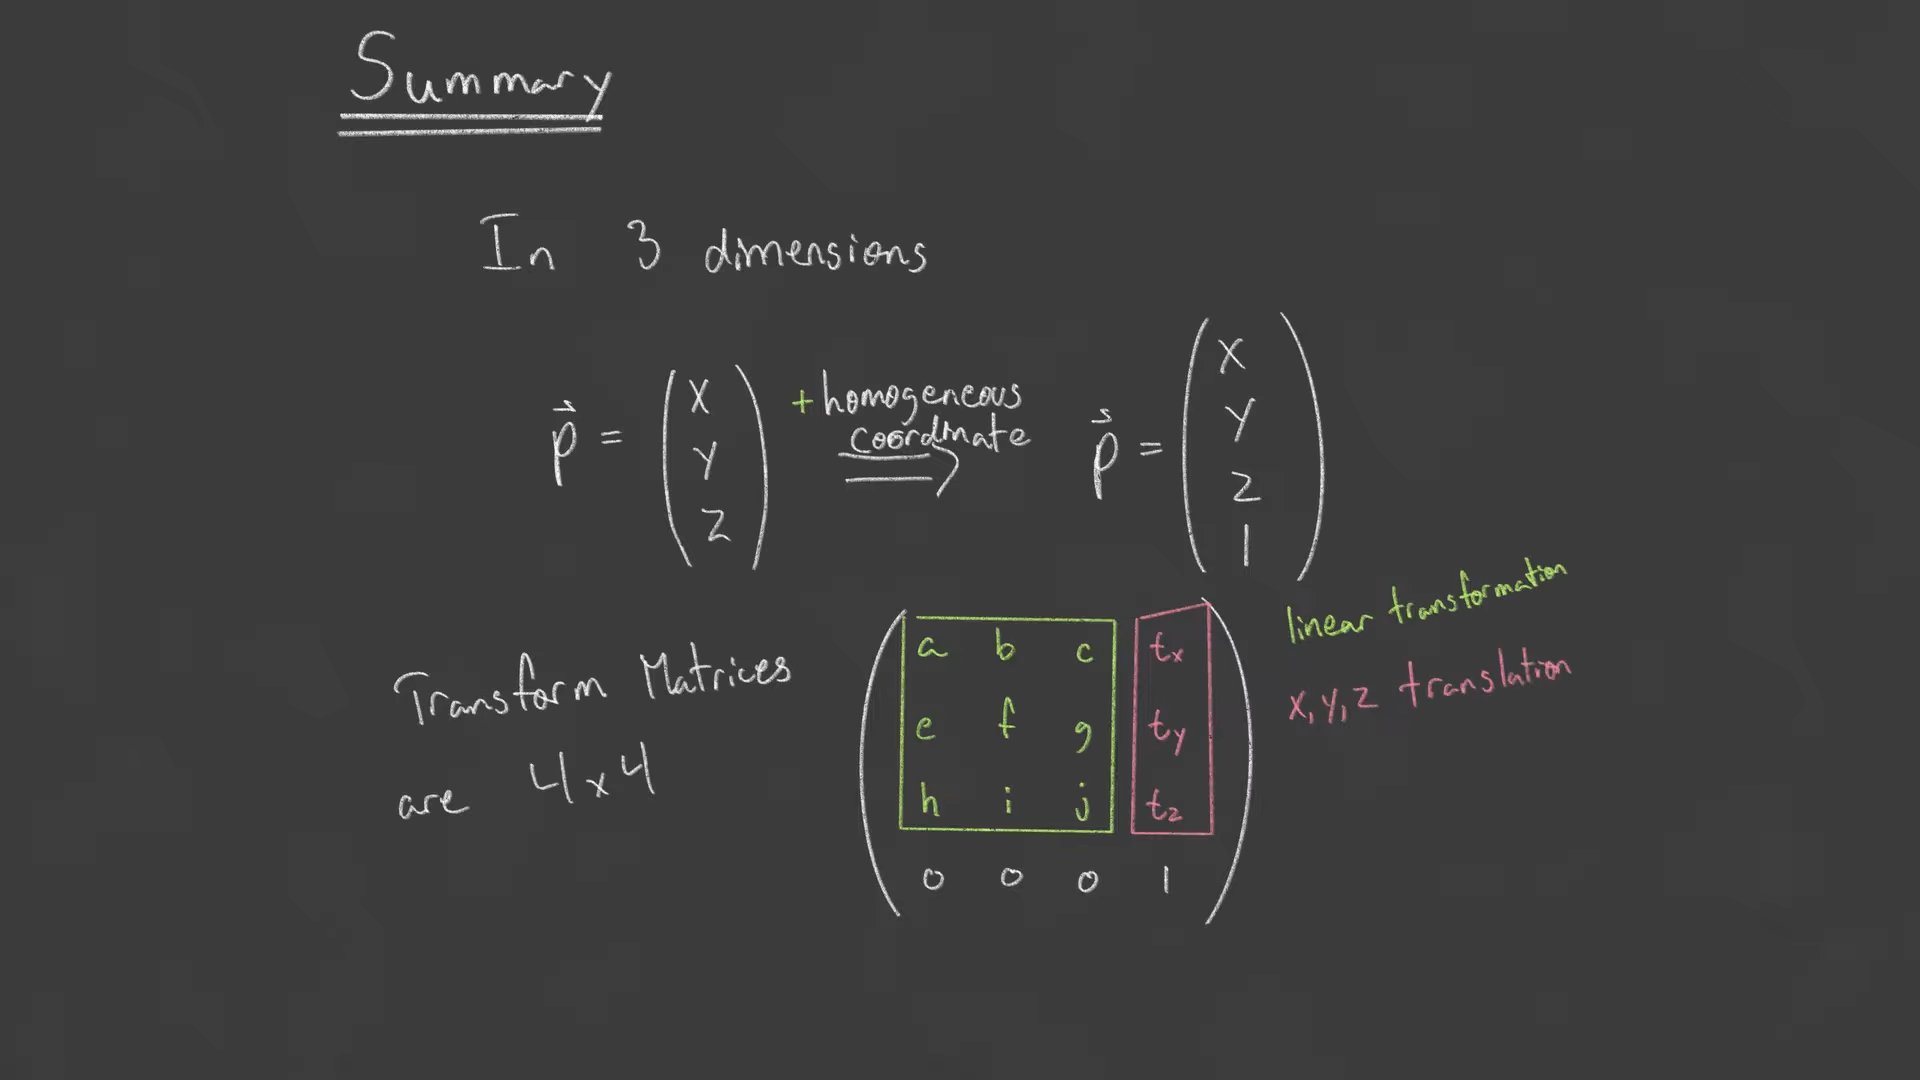 Summary
In 3 dimensions
p⃗ = (x y z) + homogeneous coordinate ⟹ p⃗ = (x y z 1)
Transform Matrices
are 4x4
a b c tx
e f g ty
h i j tz
0 0 0 1
linear transformation
x, y, z translation